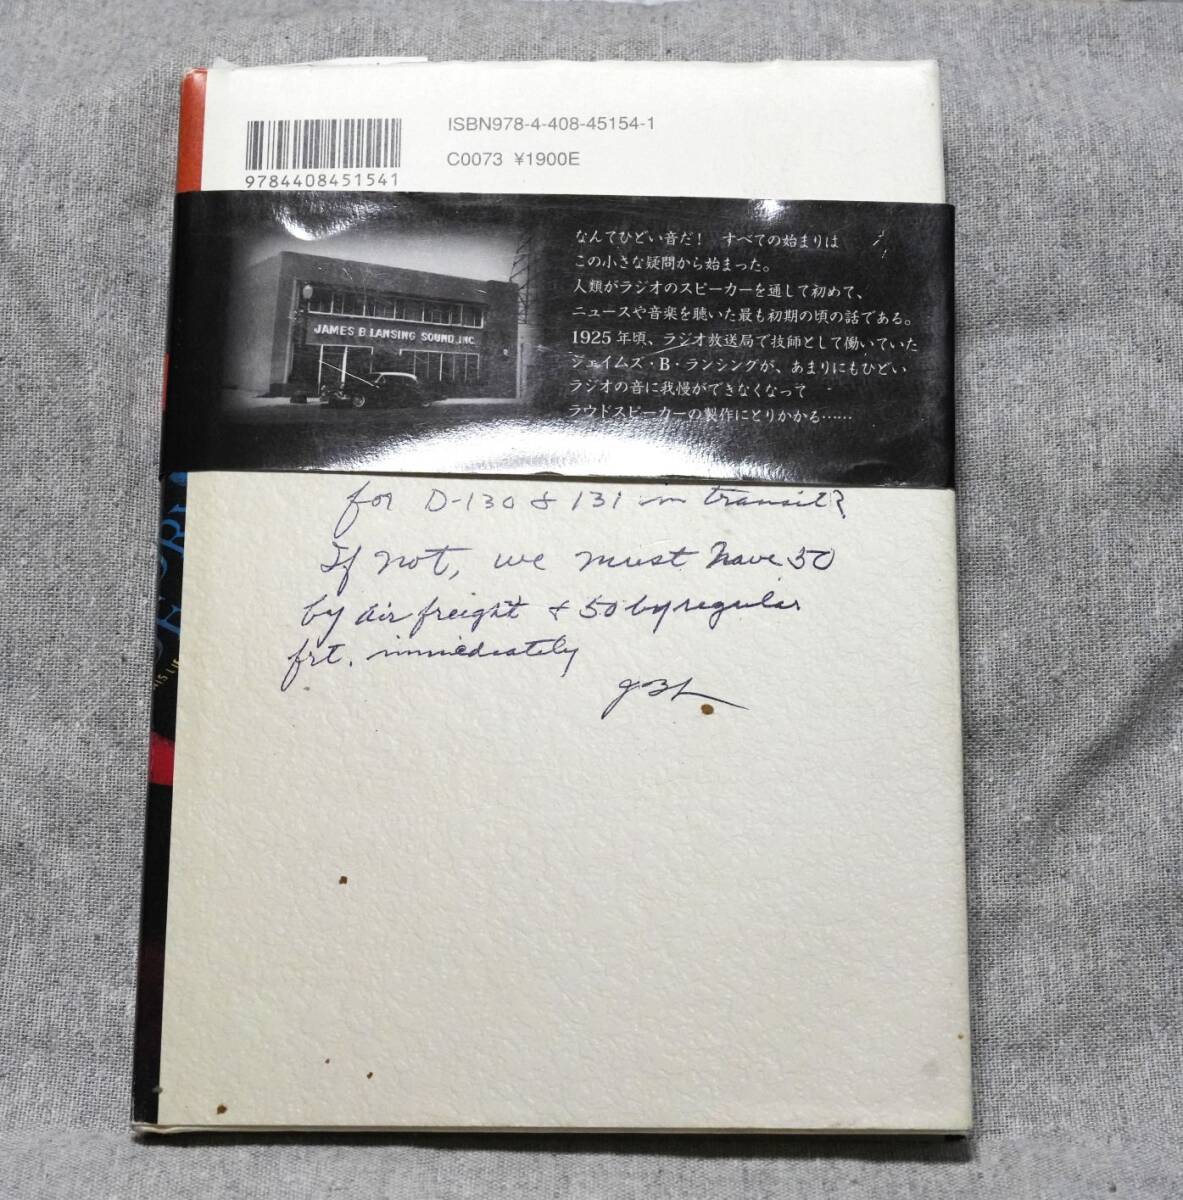 ISBN978-4-408-45154-1
C0073 ¥1900E
9784408451541
JAMES B LANSING SOUND, INC.
なんてひどい音だ！　すべての始まりは
この小さな疑問から始まった。
人類がラジオのスピーカーを通して初めて、
ニュースや音楽を聴いた最も初期の頃の話である。
1925年頃、ラジオ放送局で技師として働いていた
ジェイムズ・B・ランシングが、あまりにもひどい
ラジオの音に我慢ができなくなって
ラウドスピーカーの製作にとりかかる……
for D-130 & 131 in transit?
If not, we must have 50
by air freight & 50 by regular
frt. immediately
JBL